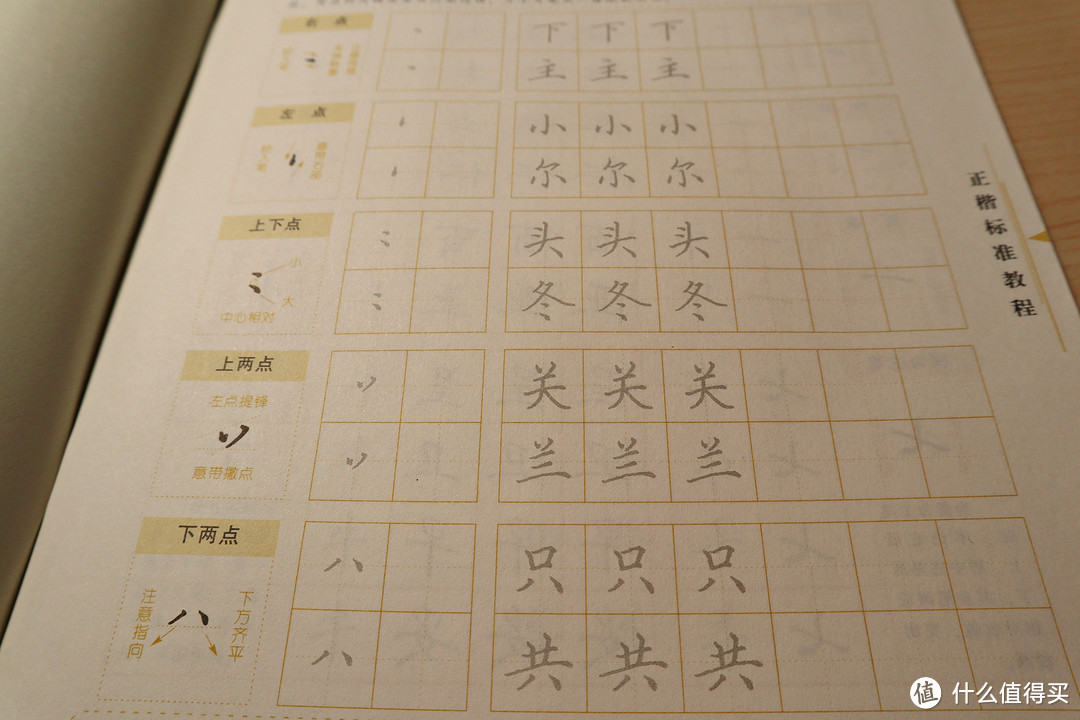 右点
下下下
主主主
左点
小小小
尔尔尔
上下点
小
大
中心相对
头头头
冬冬冬
上两点
左点提锋
意带撇点
关关关
兰兰兰
下两点
注意指向
下方齐平
八
只只只
八
共共共
正楷标准教程
值 什么值得买